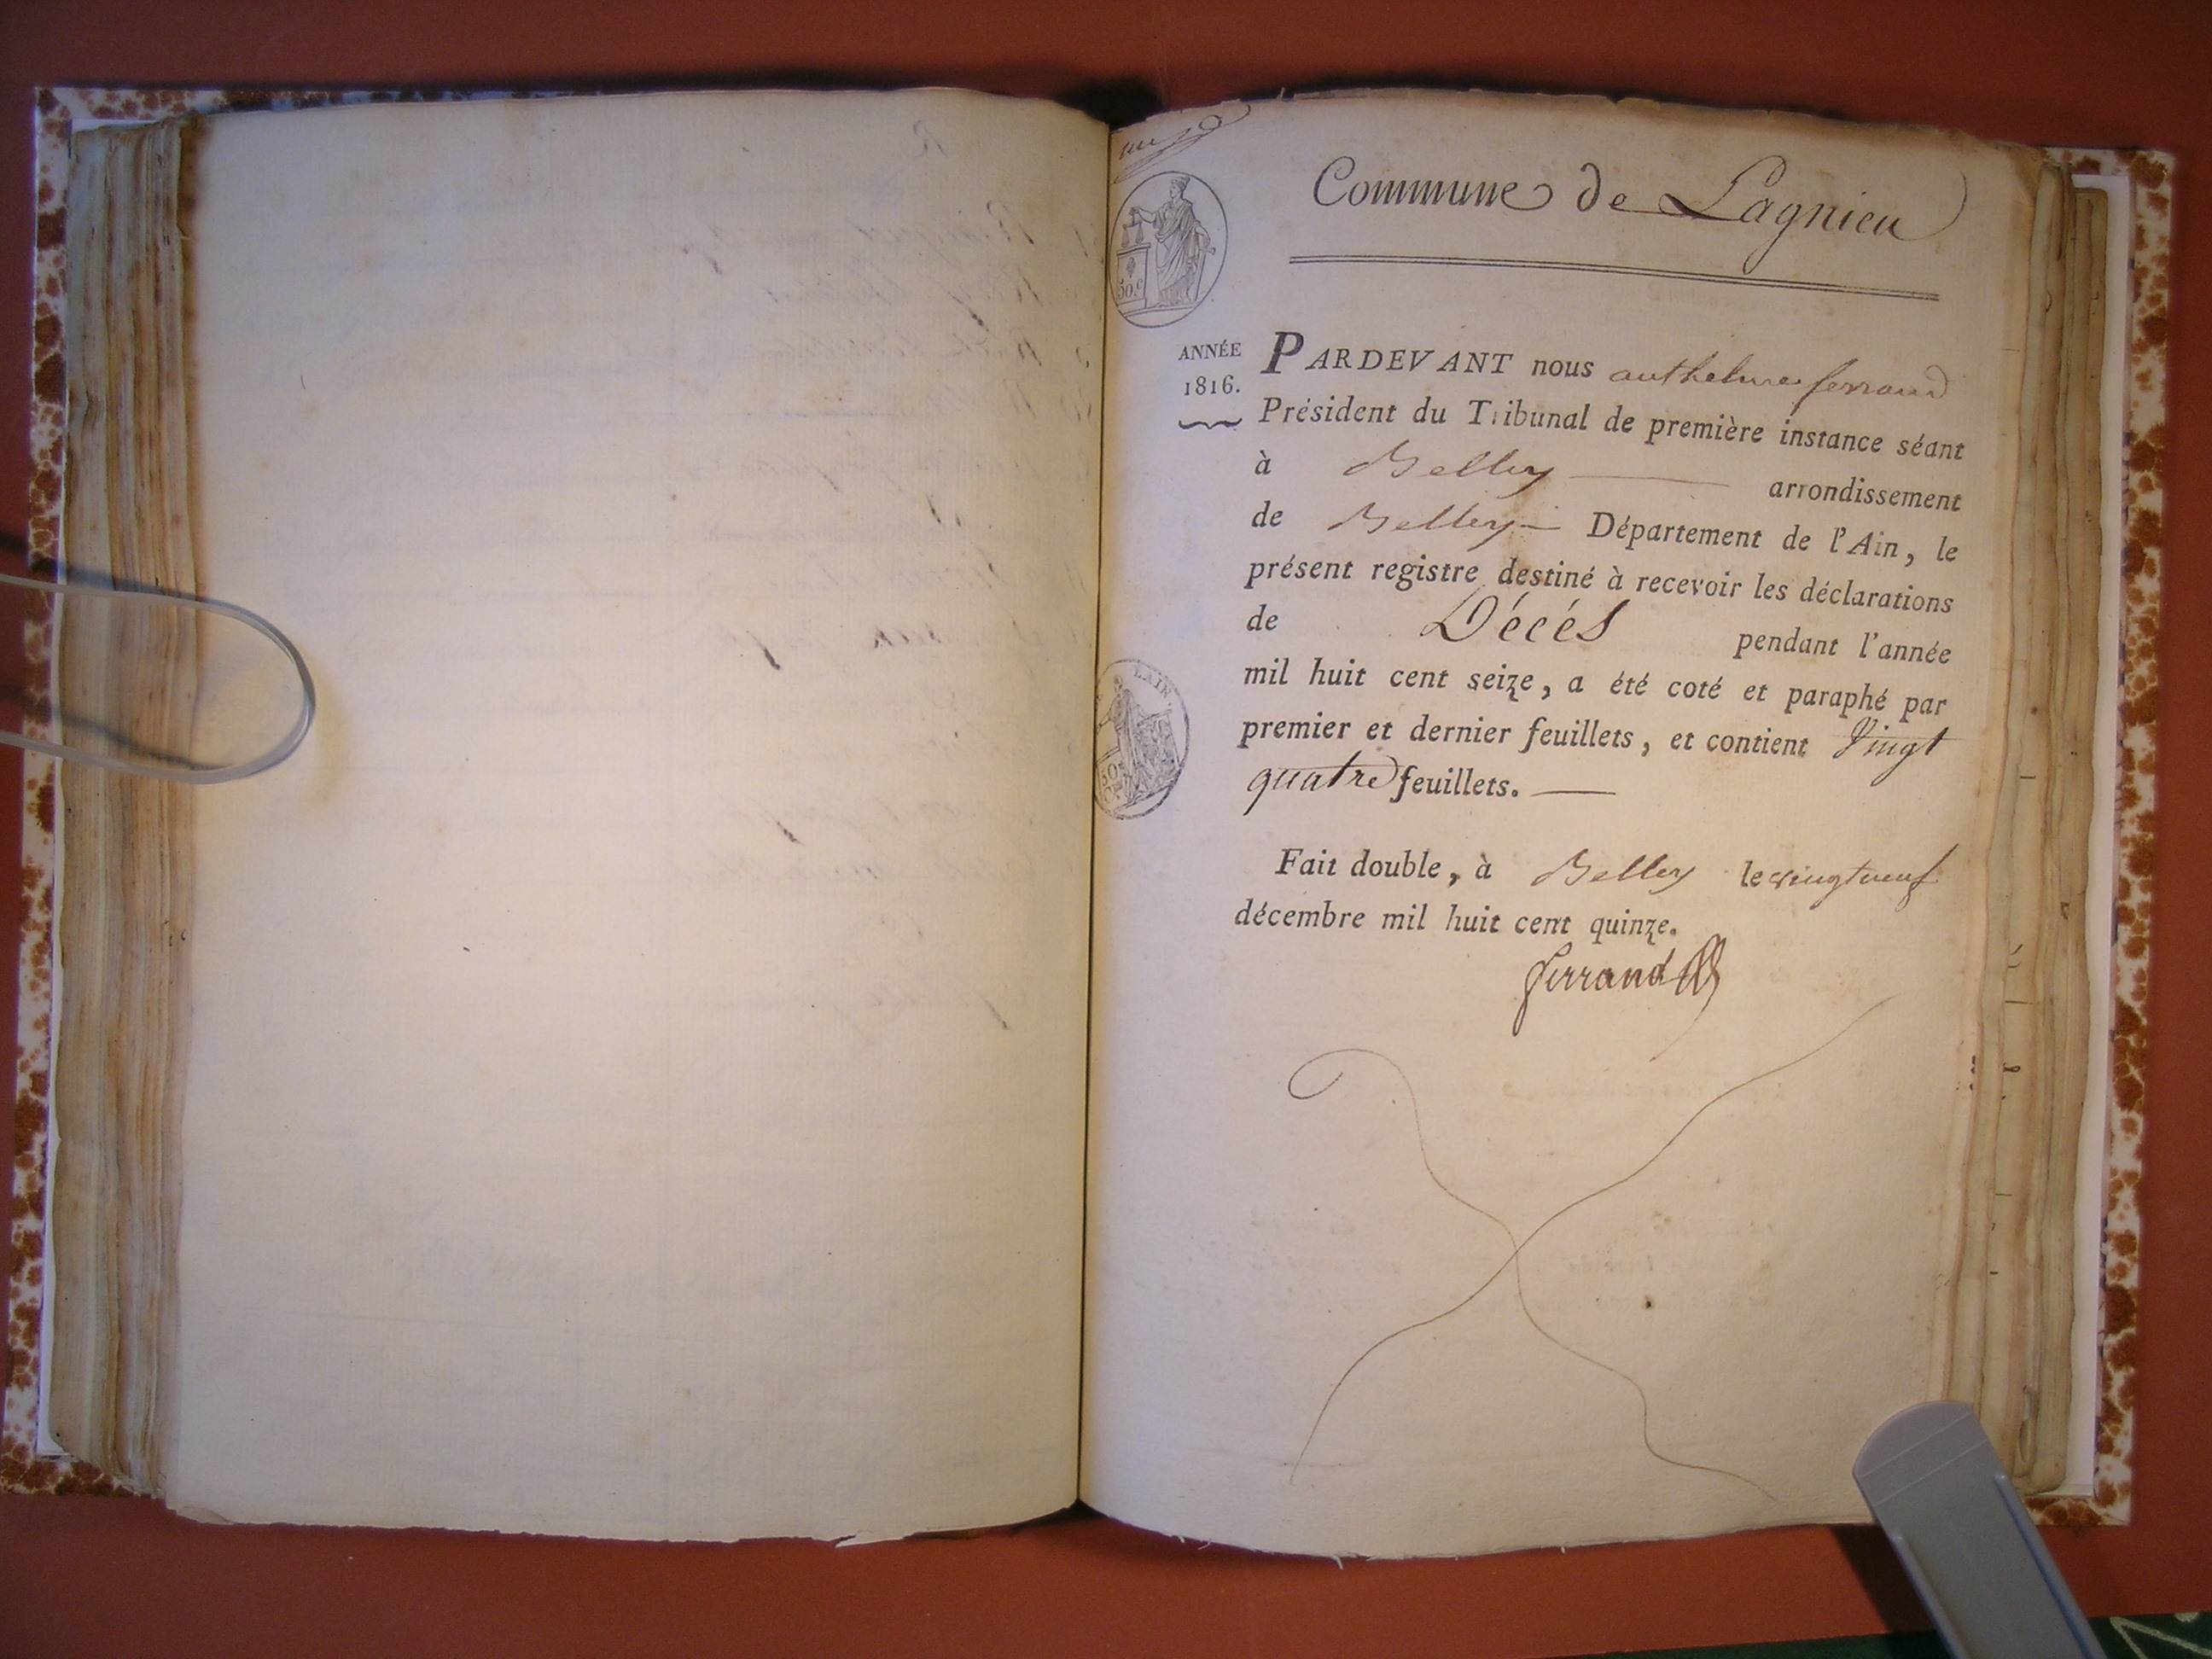 Commune de Lagnieu
50.c
ANNÉE
1816.
PARDEVANT nous anthelme ferrand
Président du Tribunal de première instance séant
à Belley arrondissement
de Belley Département de l'Ain, le
présent registre destiné à recevoir les déclarations
de Décés pendant l'année
mil huit cent seize, a été coté et paraphé par
premier et dernier feuillets, et contient Vingt
quatre feuillets.
Fait double, à Belley le vingt neuf
décembre mil huit cent quinze.
ferrand